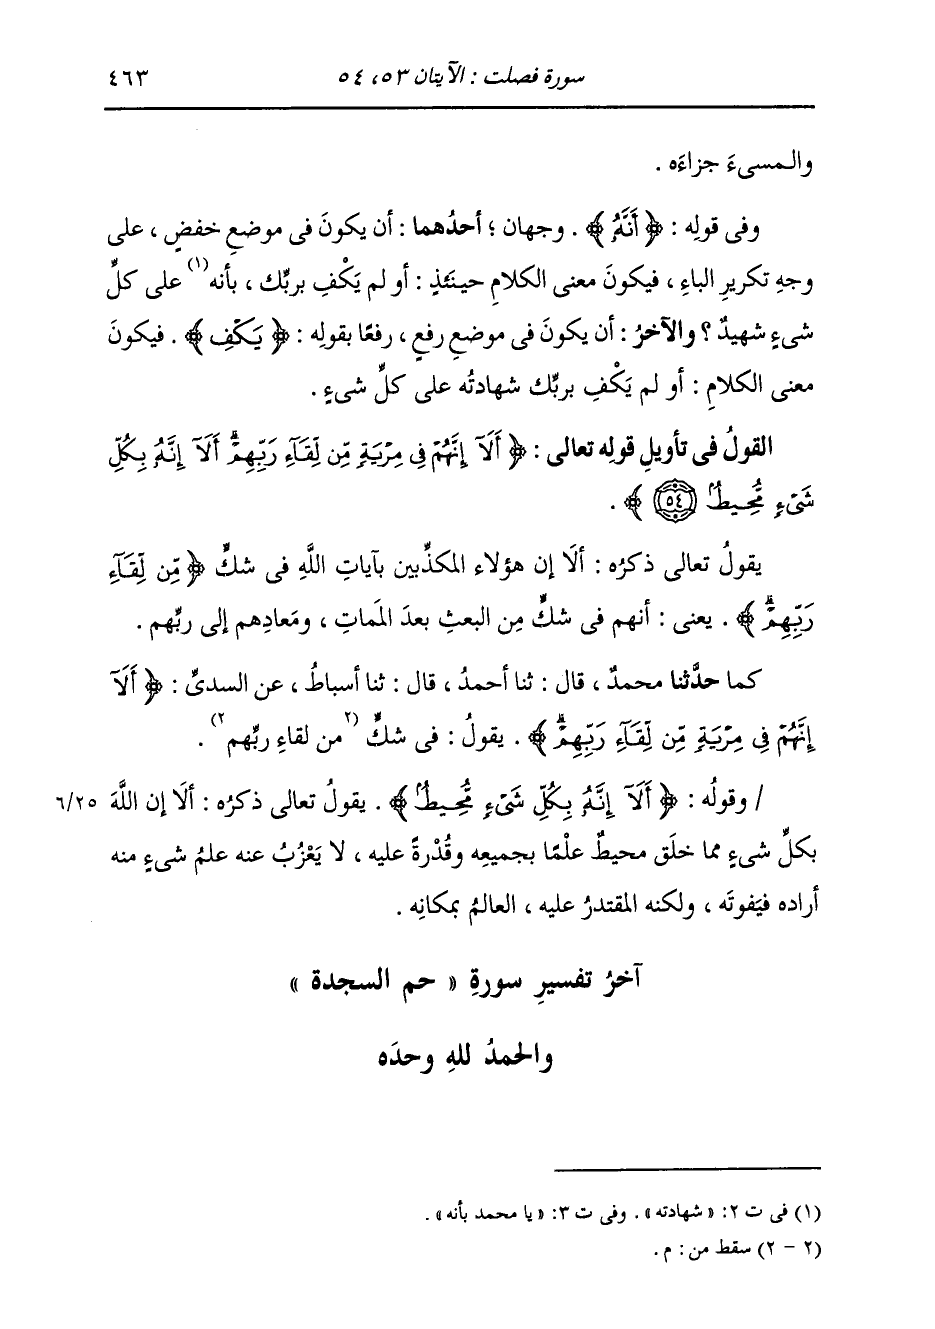 سورة فصلت : الآيتان ٥٣، ٥٤ ٤٦٣
والـمسىءَ جزاءَه .
وفى قولِه : ﴿ أَنَّهُۥ ﴾ . وجهان ؛ أحدُهما : أن يكونَ فى موضعِ خفضٍ ، على
وجهِ تكريرِ الباءِ ، فيكونَ معنى الكلامِ حينَئذٍ : أو لم يَكْفِ بربِّك ، بأنه(١) على كلِّ
شىءٍ شهيدٌ ؟ والآخرُ : أن يكونَ فى موضعِ رفعٍ ، رفعًا بقولِه : ﴿ يَكْفِ ﴾ . فيكونَ
معنى الكلامِ : أو لم يَكْفِ بربِّك شهادتُه على كلِّ شىءٍ .
القولُ فى تأويلِ قولِه تعالى : ﴿ أَلَآ إِنَّهُمْ فِى مِرْيَةٍ مِّن لِّقَآءِ رَبِّهِمْ ۗ أَلَآ إِنَّهُۥ بِكُلِّ
شَىْءٍ مُّحِيطٌۢ ٥٤ ﴾ .
يقولُ تعالى ذكرُه : ألَا إن هؤلاء المكذِّبين بآياتِ اللَّهِ فى شكٍّ ﴿ مِّن لِّقَآءِ
رَبِّهِمْ ۗ ﴾ . يعنى : أنهم فى شكٍّ مِن البعثِ بعدَ المَماتِ ، ومَعادِهم إلى ربِّهم .
كما حدَّثنا محمدٌ ، قال : ثنا أحمدُ ، قال : ثنا أسباطُ ، عن السدىِّ : ﴿ أَلَآ
إِنَّهُمْ فِى مِرْيَةٍ مِّن لِّقَآءِ رَبِّهِمْ ۗ ﴾ . يقولُ : فى شكٍّ (٢من لقاءِ ربِّهم٢) .
/ وقولُه : ﴿ أَلَآ إِنَّهُۥ بِكُلِّ شَىْءٍ مُّحِيطٌۢ ﴾ . يقولُ تعالى ذكرُه : ألَا إن اللَّهَ ٦/٢٥
بكلِّ شىءٍ مما خلَق محيطٌ علْمًا بجميعِه وقُدْرةً عليه ، لا يَعْزُبُ عنه علمُ شىءٍ منه
أراده فيَفوتَه ، ولكنه المقتدرُ عليه ، العالمُ بمكانِه .
آخرُ تفسيرِ سورةِ « حم السجدة »
والحمدُ للهِ وحدَه
(١) فى ت ٢: «شهادته» . وفى ت ٣: «يا محمد بأنه» .
(٢ – ٢) سقط من : م .